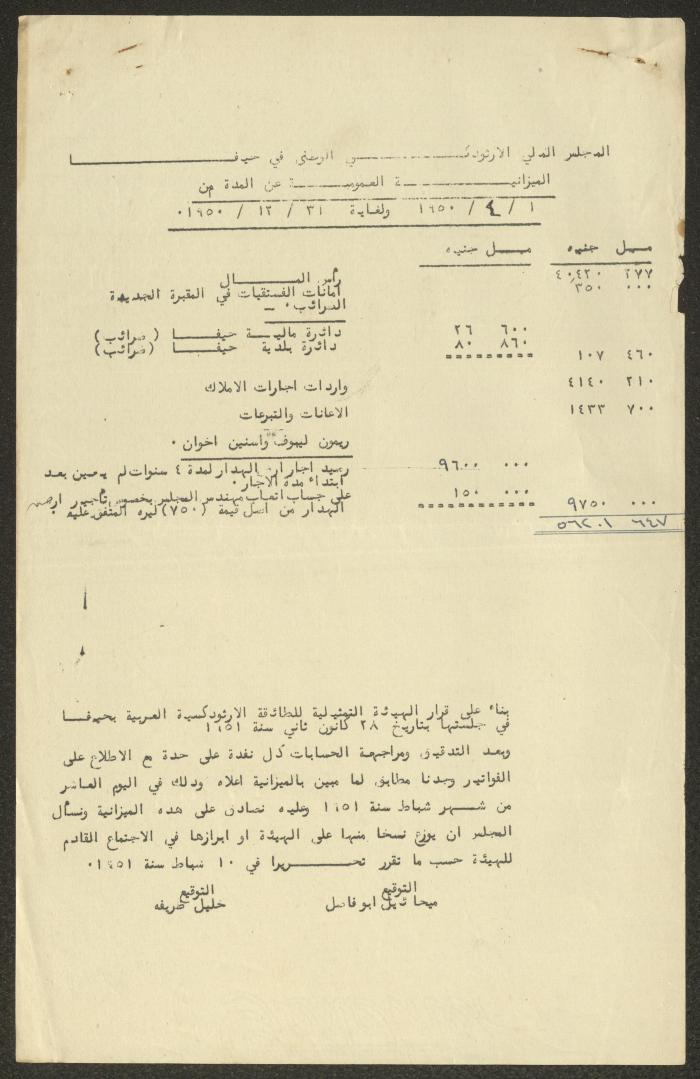 المجلس الملي الارثوذكـــــي الوطني في حيفـــــا
الميزانيـــــة العموميـــــة عن المدة من
١ / ٤ / ١٩٥٠ ولغاية ٣١ / ١٢ / ١٩٥٠.
مـــل جنيه مـــل جنيه
٢٧٧ ٤٠،٤٢٠ رأس المـــــال
٠٠٠ ٣٥٠ امانات الفستقيات في المقبرة الجديدة
الضرائب . ــ
٦٠٠ ٢٦ دائرة مالية حيفـــا (ضرائب)
٨٦٠ ٨٠ دائرة بلدية حيفـــا (ضرائب)
٤٦٠ ١٠٧
٢١٠ ٤١٤٠ واردات اجارات الاملاك
٧٠٠ ١٤٣٣ الاعانات والتبرعات
ريمون ليبوف واسنين اخوان .
٠٠٠ ٩٦٠٠ رصيد اجار ارض الهدار لمدة ٤ سنوات لم يعين بعد
ابتداء مدة الاجار .
٠٠٠ ١٥٠ على حساب اتعاب مهندس المجلس بخصوص تأجير ارض
٠٠٠ ٩٧٥٠ الهدار من اصل قيمة (٧٥٠) ليره المتفق عليه .
٦٤٧ ٥٦٢٠١
بناء على قرار الهيئة التمثيلية للطائفة الارثوذكسية العربية بحيفـــا
في جلستها بتاريخ ٢٨ كانون ثاني سنة ١٩٥١
وبعد التدقيق ومراجعة الحسابات كل نفدة على حدة مع الاطلاع على
الفواتير وجدنا مطابق لما مبين بالميزانية اعلاه وذلك في اليوم العاشر
من شـــهر شباط سنة ١٩٥١ وعليه نصادق على هذه الميزانية ونسأل
المجلس ان يوزع نسخا منها على الهيئة او ابرازها في الاجتماع القادم
للهيئة حسب ما تقرر تحـــــريرا في ١٠ شباط سنة ١٩٥١.
التوقيع التوقيع
ميخائيل ابو فاضل خليل ظريفه